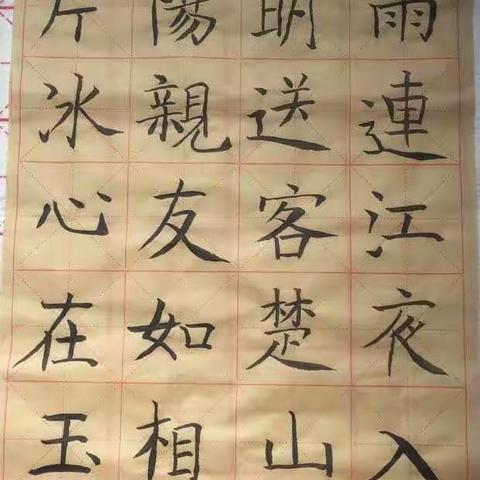 雨連江夜入
明送客楚山
陽親友如相
片冰心在玉